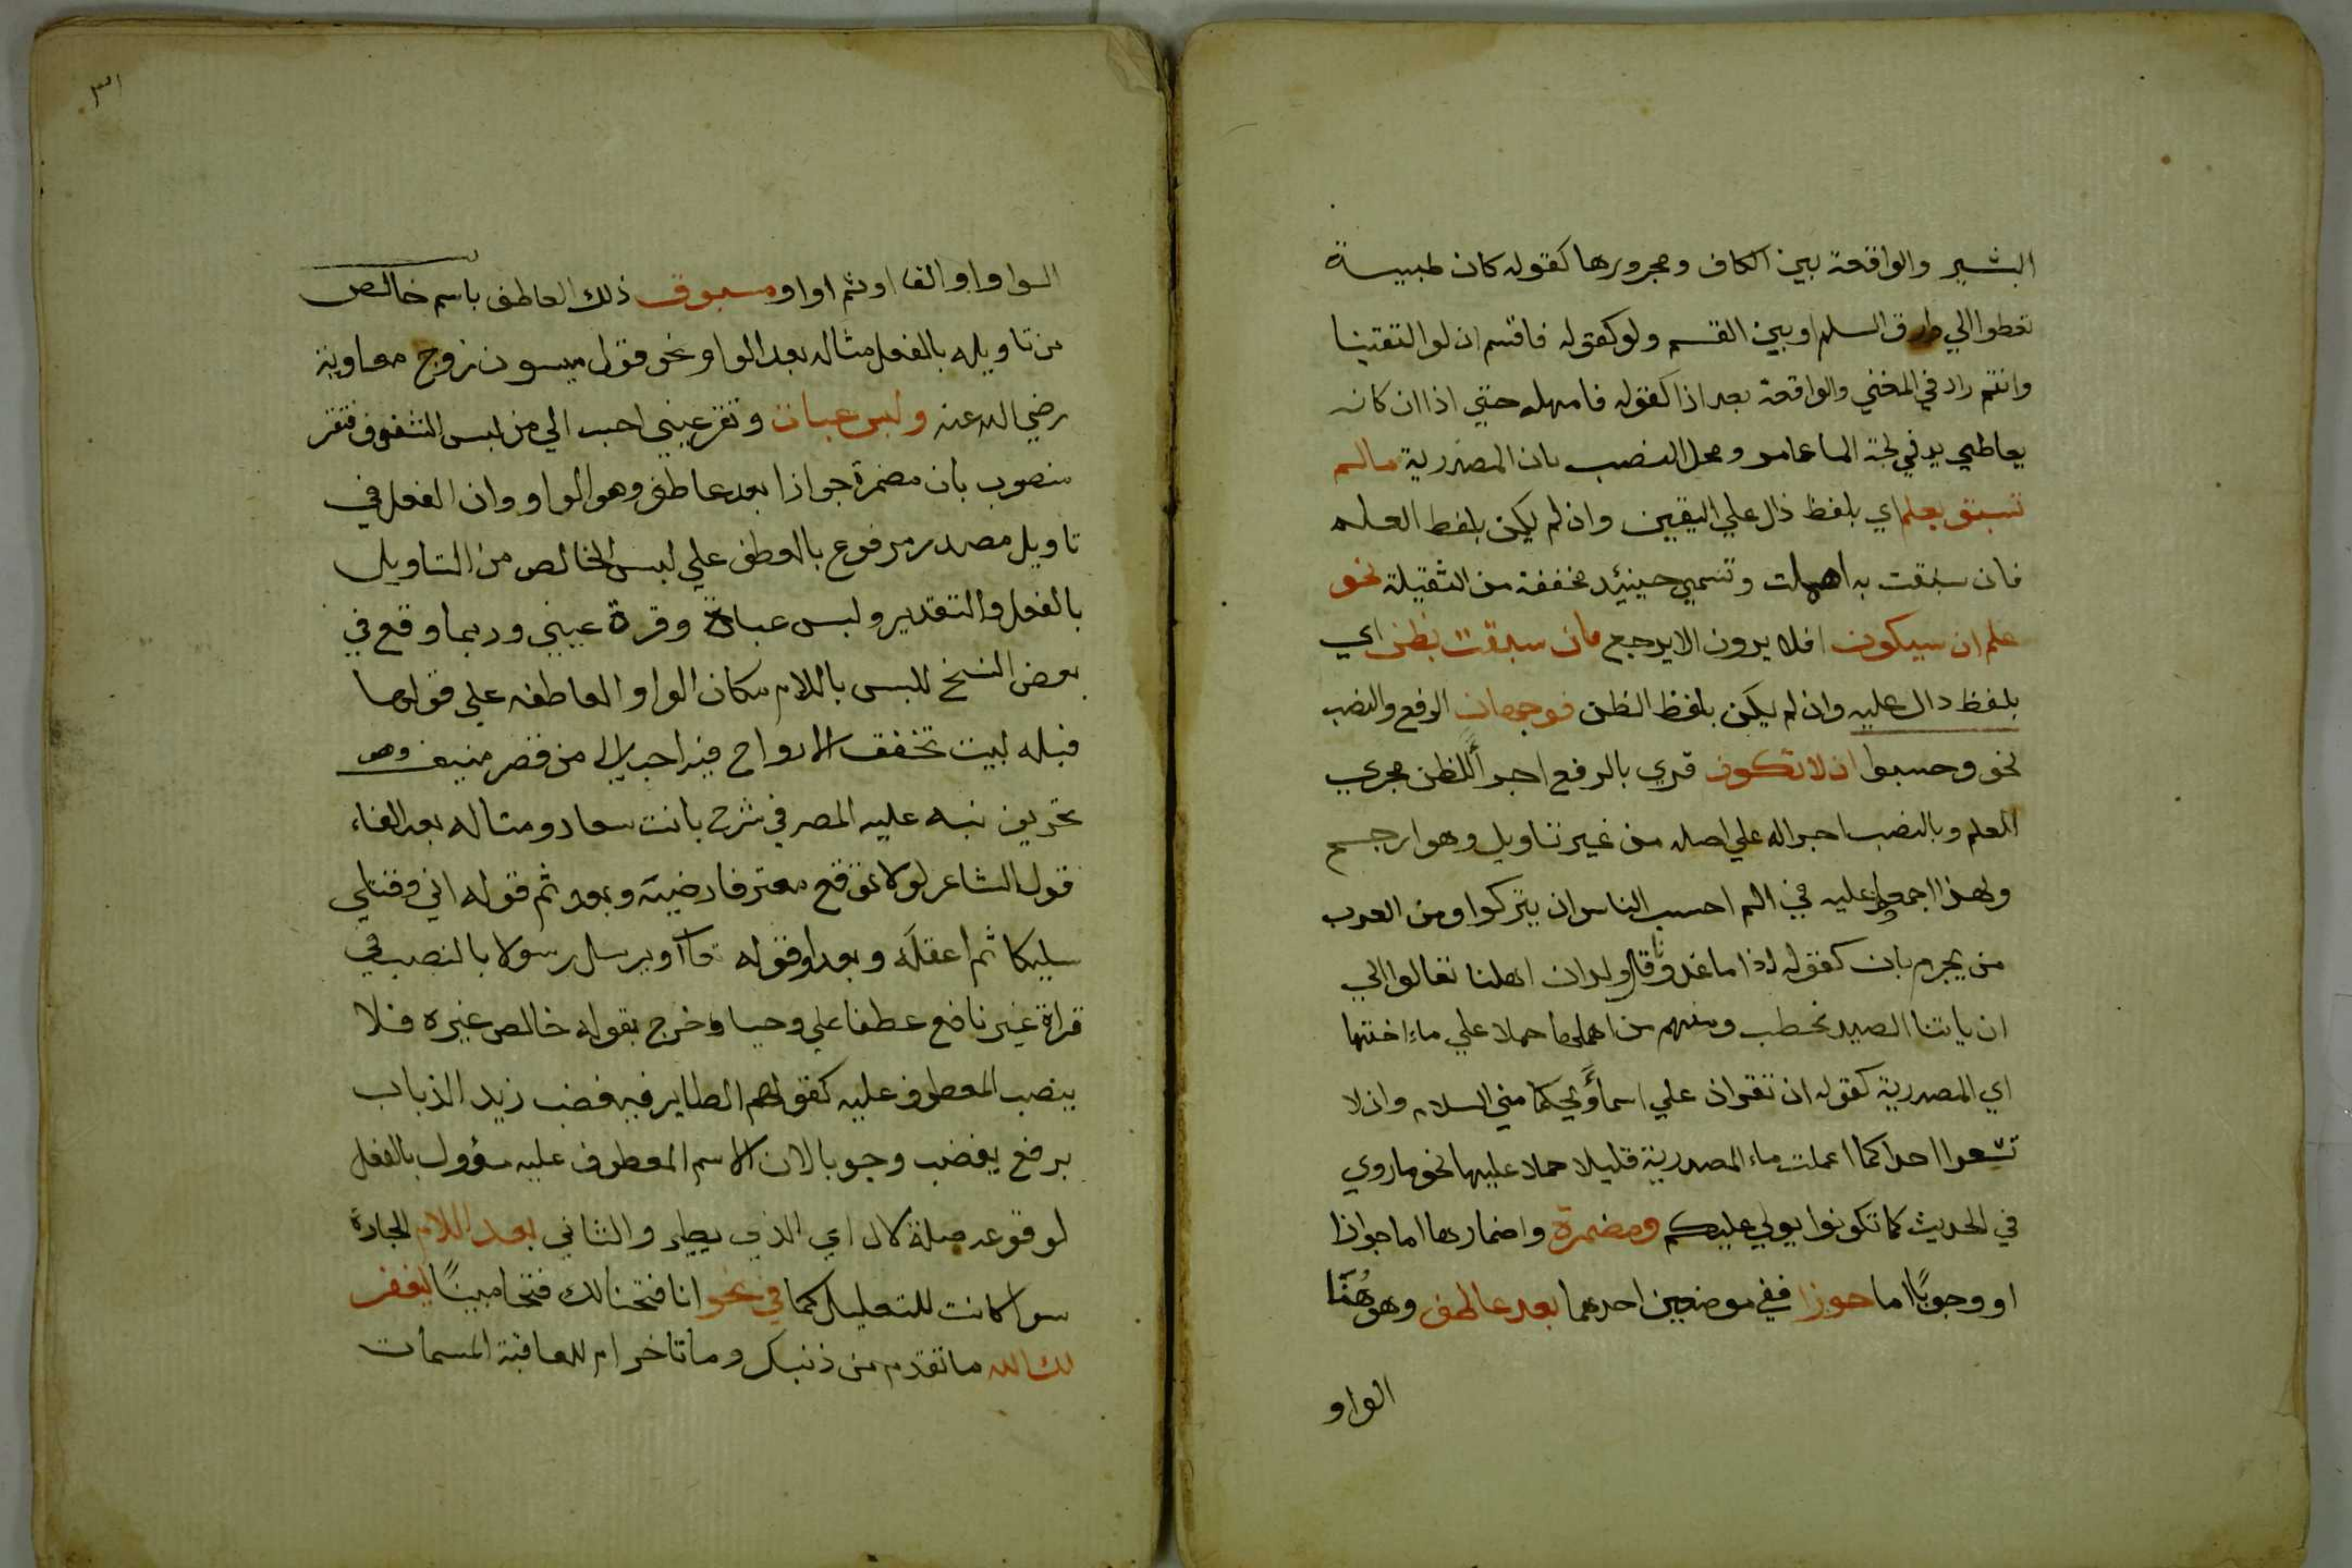 البشير والواقعة بين الكاف ومجرورها كقوله كان ظبيسة
تعطوا الي طرق السلم او بين القسم ولو كقوله فاقسم ان لو التقتينا
وانتم زاد في المغني والواقعة بعد اذا كقوله فامهله حتي اذا ان كانه
يعاطي يد في لجة الما عامر ومحل النصب بان المصدرية مالم
تسبق بعلم اي بلفظ دال علي اليقين وان لم يكن بلفظ العلم
فان سبقت به اهملت وتسمي حينئد مخففة من الثقيلة نحو
علم ان سيكون افلا يرون الا يرجع فان سبقت بظن اي
بلفظ دال عليه وان لم يكن بلفظ الظن فوجهان الرفع والنصب
نحو وحسبوا ان لا تكون قري بالرفع اجراً للظن مجري
العلم وبالنصب اجراله علي اصله من غير تاويل وهو ارجح
ولهذا اجمعوا عليه في الم احسب الناس ان يتركوا ومن العرب
من يجزم بان كقوله اذا ما غدونا قال ولدان اهلنا تعالوا الي
ان ياتنا الصيد نحطب ومنهم من اهملها حملا علي ماء اختها
اي المصدرية كقوله ان تقران علي اسماً ويحكما مني السلام وان لا
تشعرا احدا كما اعملت ماء المصدرية قليلا حملا عليها نحو ما روي
في الحديث كما تكونوا يولي عليكم ومضمرة واضمارها اما جوازا
او وجوبًا اما جوزا ففي موضعين احدهما بعد عاطف وهو هُنَا
الواو
٣١
الواو او الفا او ثم او او ومسبوق ذلك العاطف باسم خالص
من تاويله بالفعل مثاله بعد الواو نحو قول ميسون زوج معاوية
رضي الله عنه ولبس عباة وتقر عيني احب الي من لبس الشفوف فتقر
منصوب بان مضمرة جوازا بعد عاطف وهو الواو وان الفعل في
تاويل مصدر مرفوع بالعطف علي لبس الخالص من التاويل
بالفعل والتقدير ولبس عباة وقرة عيني وربما وقع في
بعض النسخ للبس باللام مكان الواو العاطفه علي قولها
قبله لبيت تخفق الارواح فيه احب الي من قصر منيف وهو
تحريف نبه عليه المصر في شرح بانت سعاد ومثاله بعد الفاء
قول الشاعر لولا توقع معتر فارضيه وبعد ثم قوله اني وقتلي
سليكا ثم اعقله وبعد او قوله تعا او يرسل رسولا بالنصب في
قراة غير نافع عطفا علي وحيا وخرج بقوله خالص غيره فلا
ينصب المعطوف عليه كقولهم الطاير فيغضب زيد الذباب
برفع يغضب وجوبا لان الاسم المعطوف عليه مؤول بالفعل
لوقوعه صلة لال اي الذي يطير والثاني بعد اللام الجارة
سوا كانت للتعليل كما في نحو انا فتحنا لك فتحا مبينًا ليغفر
لك الله ما تقدم من ذنبك وما تاخر ام للعاقبة المسمات